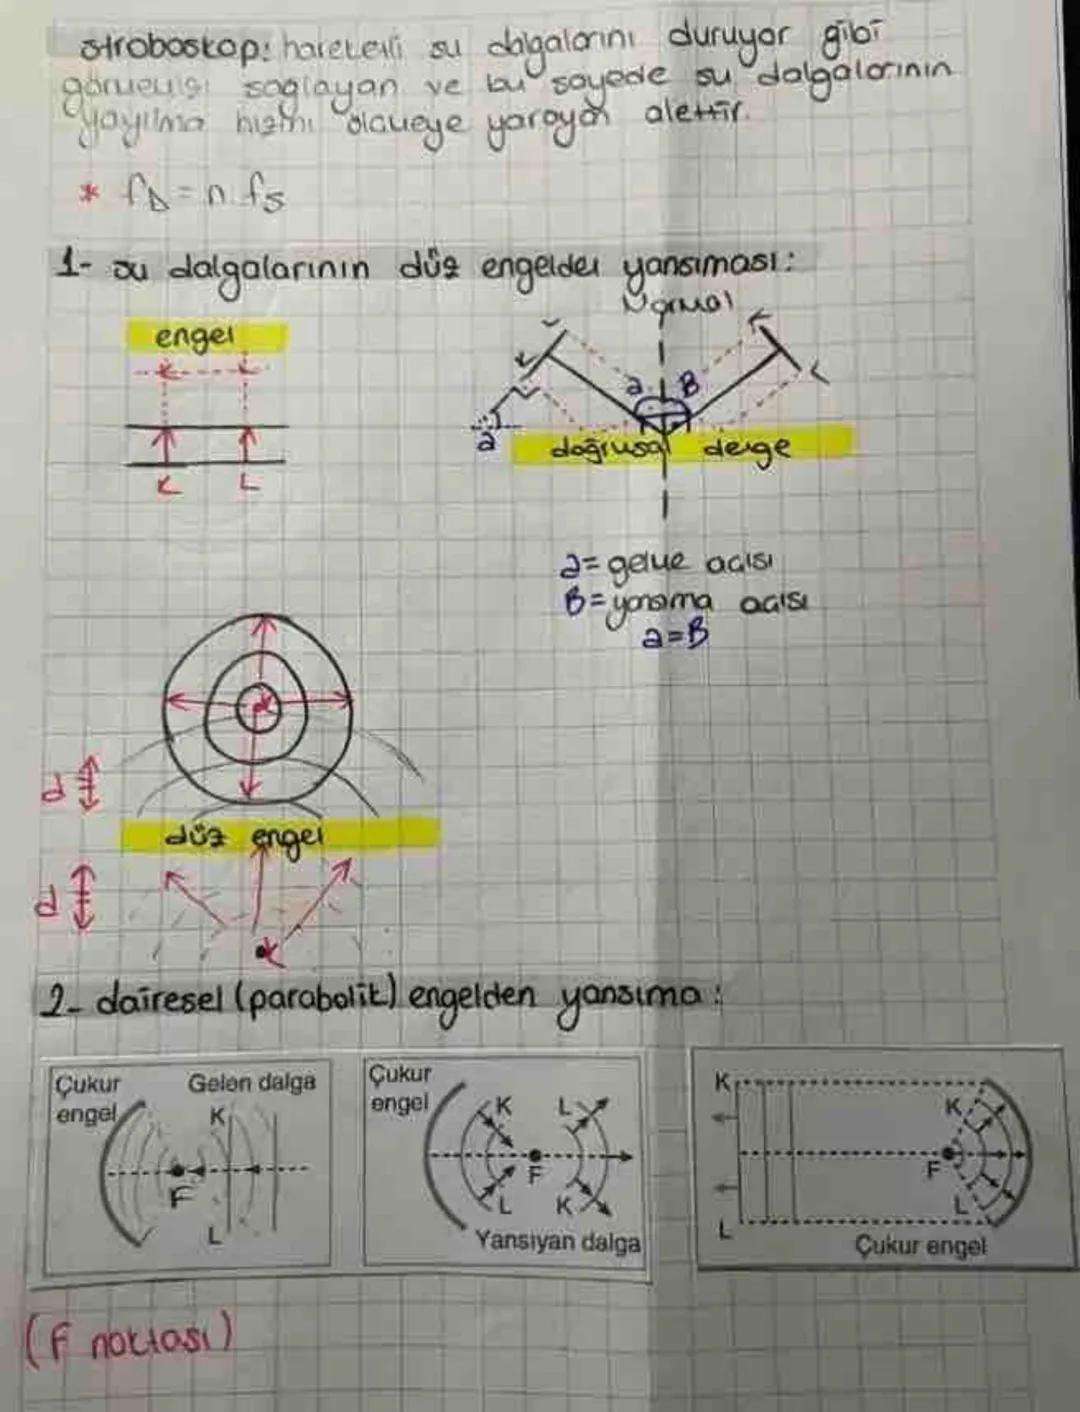 stroboskop: hareketli su dalgalarını duruyor gibi
görmemizi sağlayan ve bu sayede su dalgalarının
yayılma hızını ölçmeye yarayan alettir.
* fD = n.fs
1- su dalgalarının düz engelden yansıması:
Normal
engel
K L
K L
a B
K L
K L
a
doğrusal denge
a = gelme açısı
B = yansıma açısı
a = B
K
d
düz engel
d
K
2- dairesel (parabolik) engelden yansıma:
Çukur engel
Gelen dalga
K
F
L
Çukur engel
K L
F
L K
Yansıyan dalga
K
K
F
L
L
Çukur engel
(F noktası)